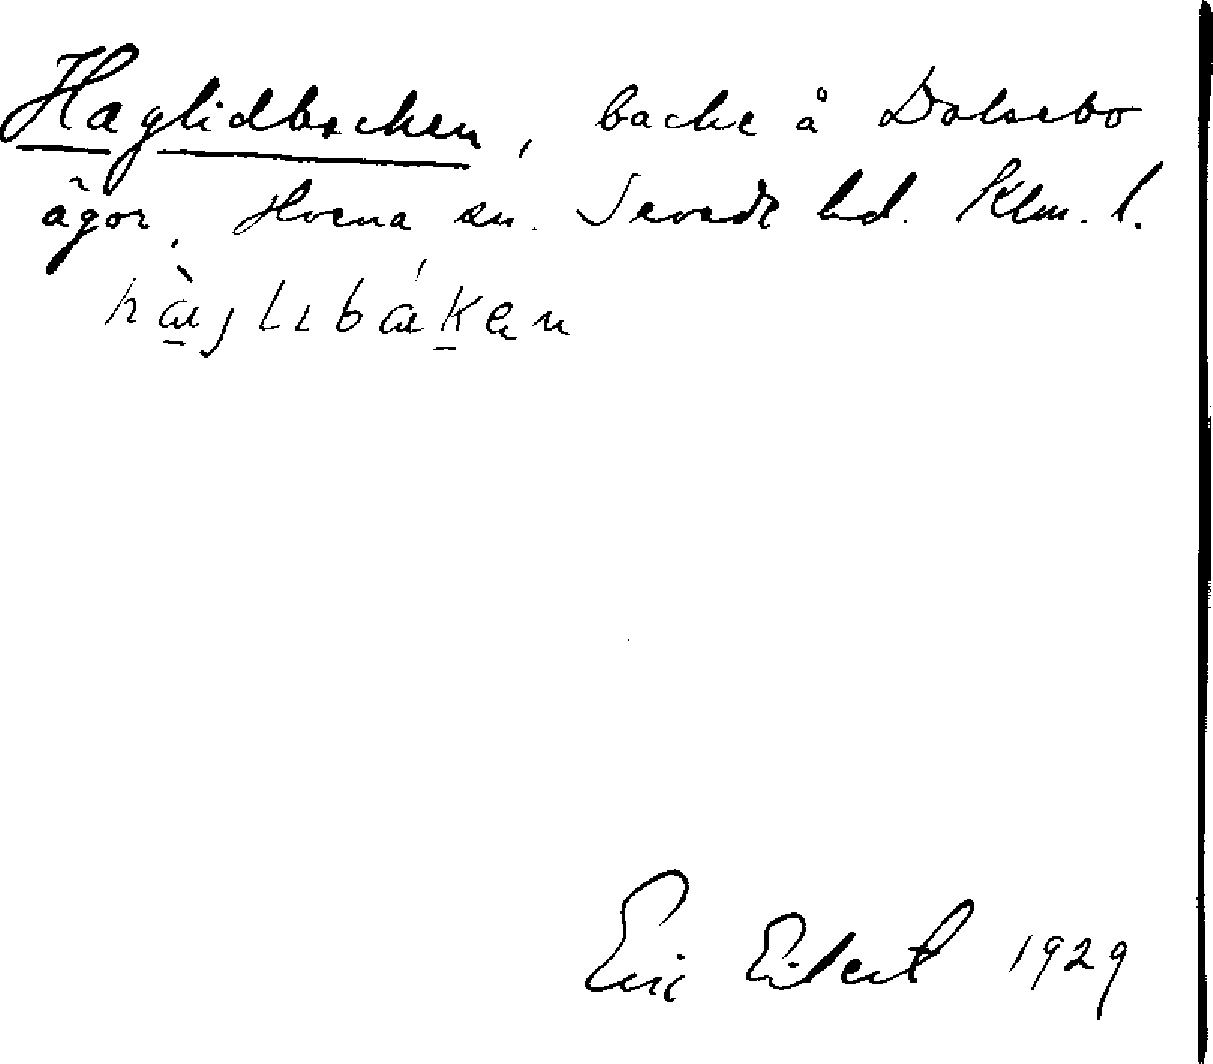 Haglidbacken, backe å Dalsebo
ägor, Hvena sn. Sevede hd. Klm. l.
Eric Elsert 1929